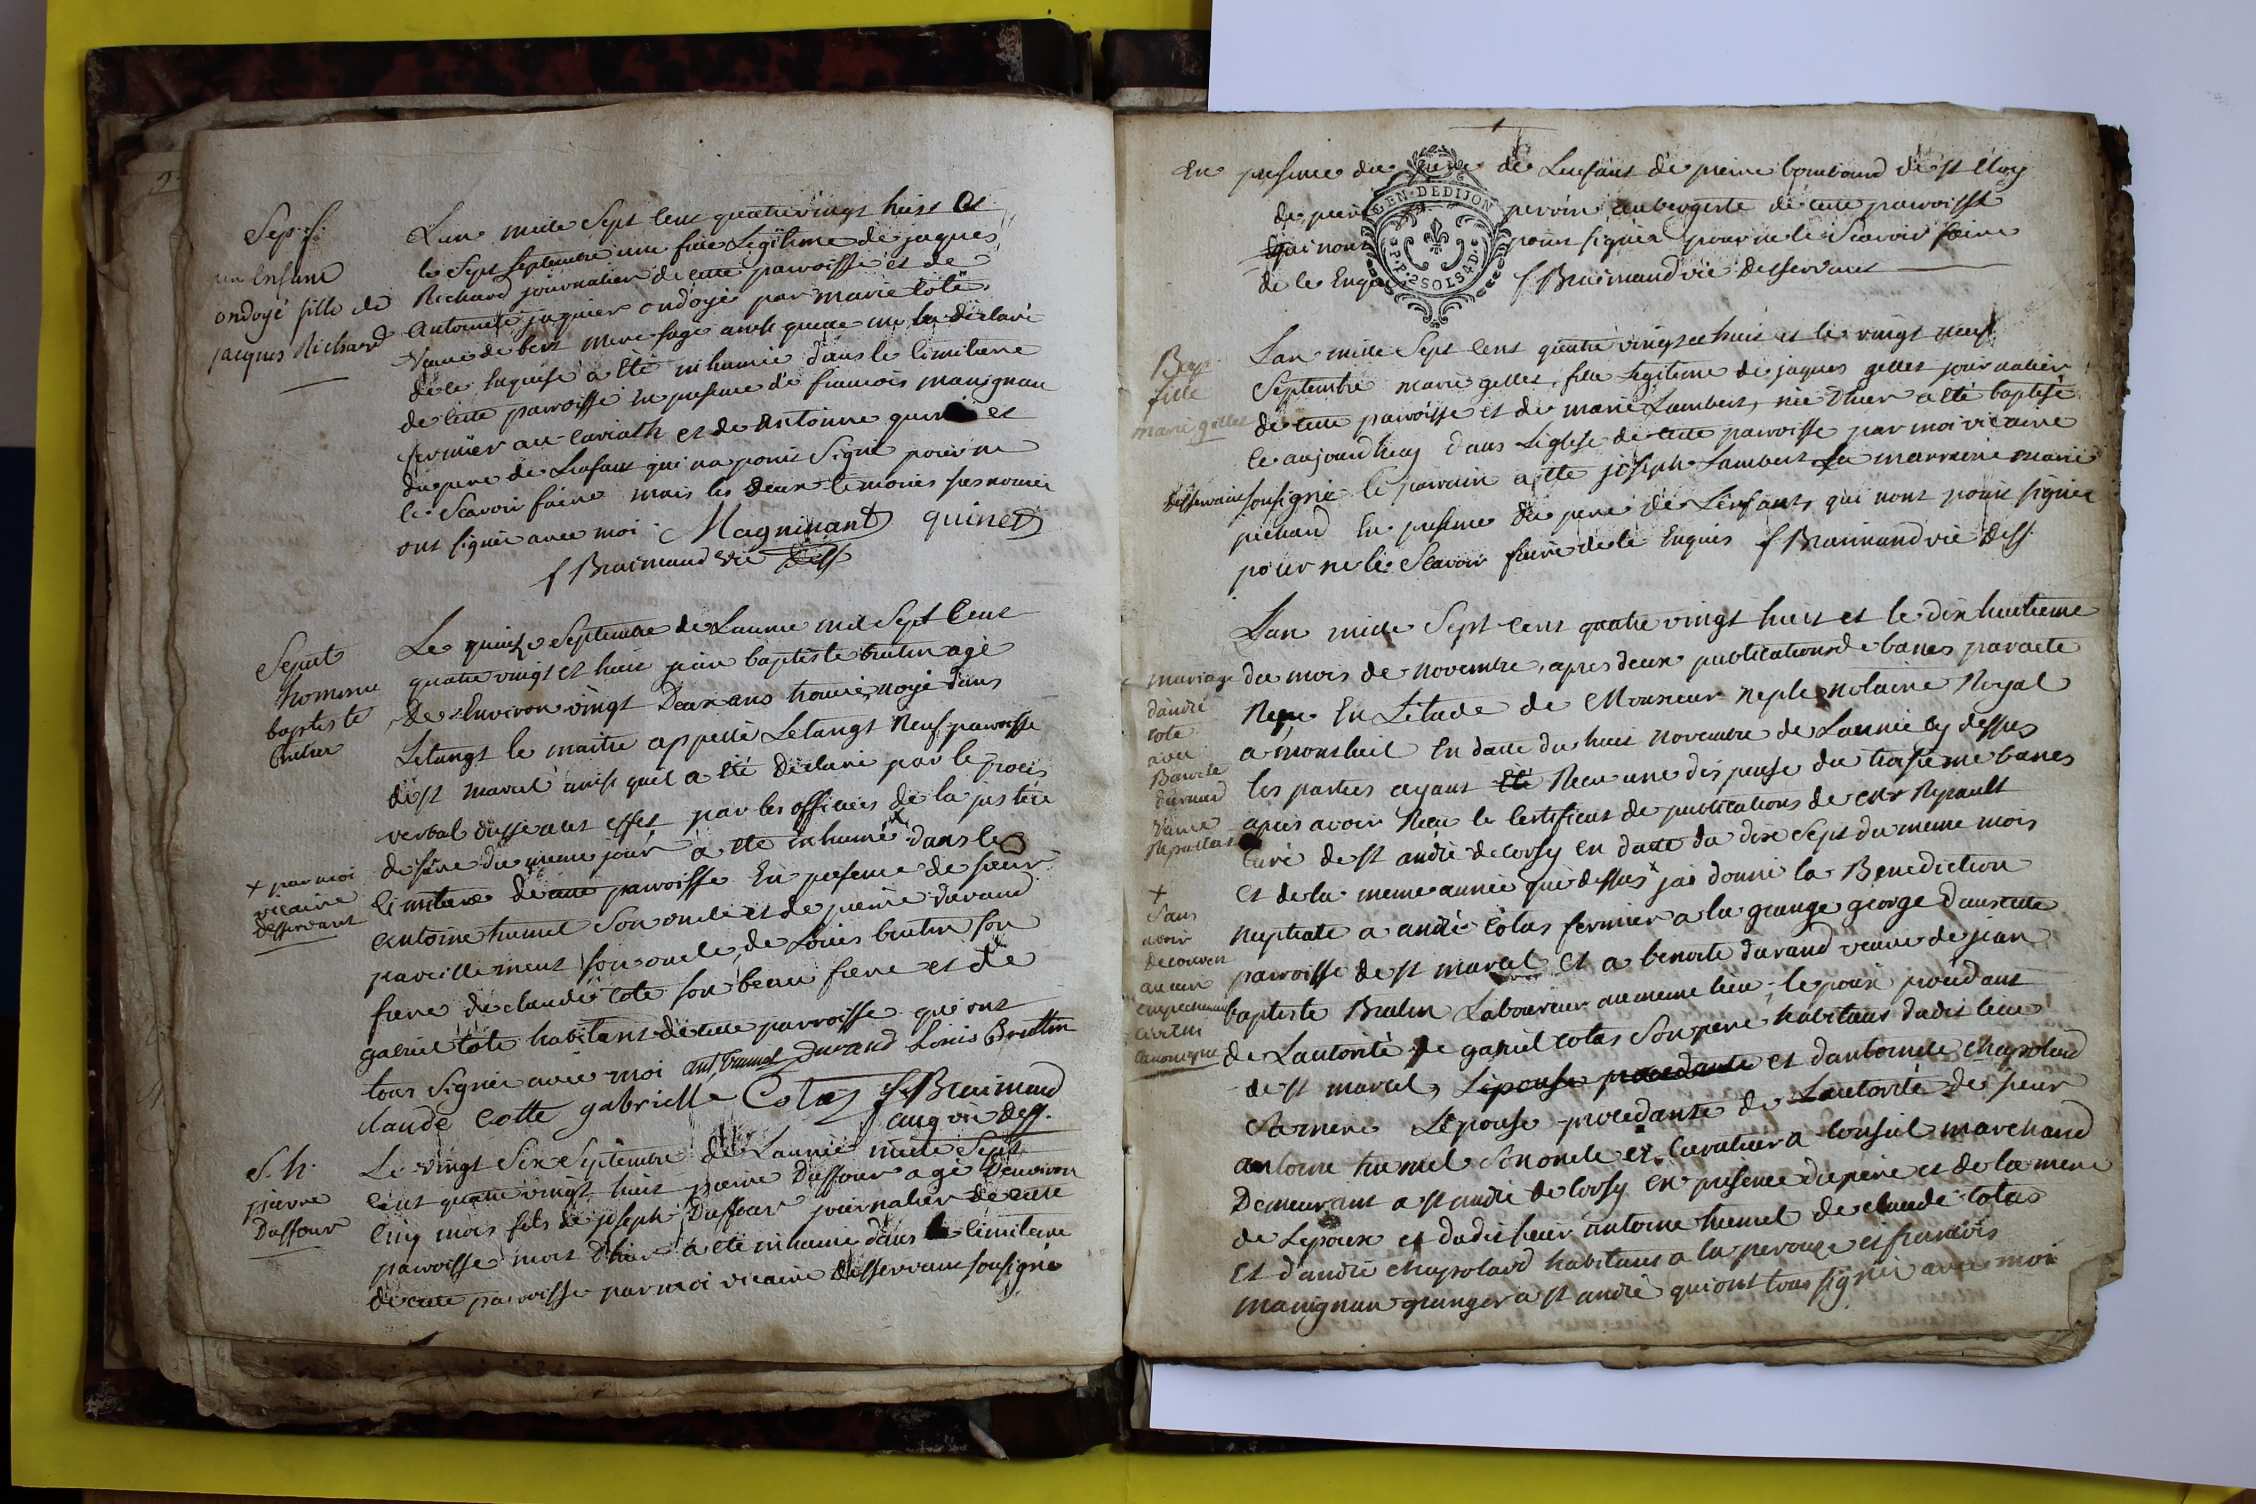 Sep. f.
un Enfant
ondoyé fille de
jacques Richard
L'an mille Sept cent quatrevingt huit et
le Sept Septembre une fille Légitime de jaques
Richard journalier de cette parroisse et de
antoinette jaquier ondoyé par marie
veuve de mere sage
de le enquise a été inhumée dans le cimitiere
de cette parroisse En presence de francois manignan
fermier au et de antoinne quinet et
du pere de Lenfant qui na point Signé pour ne
le Scavoir faire mais les deux temoins susnomés
ont signés avec moi Magninant quinet
f Braimaud vic dess
Sepult
homme
baptiste
brutin
Le quinze Septembre de L'année mil Sept Cent
quatre vingt et huit jean baptiste brutin agé
de Environ vingt Deux ans trouvé noyé dans
Létangt le maitre appellé Létangt Neuf parroisse
de st marcel ainsi quil a été déclaré par le procés
verbal dressé a cet effet par les officiers de la justice
de du meme jour a été inhumé x dans le
+ par moi
vicaire
desservant
cimitiere de cette parroisse En presence de sieur
antoine humel Son oncle et de pierre durand
pareillement son oncle, de Louis brutin son
frere de claude cote son beau frere et de
gabriel cote habitant de cette parroisse qui ont
tous signés avec moi ant. humel Durand Louis Bruttin
claude Cotte gabrielle Cotas f Braimaud
vic dess.
S. h.
pierre
Duffour
Le vingt Six Septembre de L'année mille Sept
cent quatre vingt huit pierre Duffour agé Denviron
cinq mois fils de joseph Duffour journalier de cette
parroisse mort D'hier a été inhumé dans le cimitiere
de cette parroisse par moi vicaire desservant sousigné
En presence du pere de Lenfant de pierre de st Eloy
de pierre perrin aubergiste de cette parroisse
qui nont point signés pour ne le Scavoir faire
de le Enquis f Braimaud vic desservant
GEN. DE DIJON
P.P. 2 SOLS 4 D.
Bap.
fille
marie gellet
L'an mille Sept cent quatre vingt et huit et le vingt neuf
Septembre marie gellet, fille Legitime de jaques gellet journalier
de cette parroisse et de marie Lambert, née D'hier a été baptisé
ce aujourdhuy dans Léglise de cette parroisse par moi vicaire
desservant sousigné le parrain a été joseph Lambert La marraine marie
pichaud En presence du pere de Lenfant, qui nont point signés
pour ne le Scavoir faire de le Enquis f Braimaud vic dess.
mariage
d'andré
cote
avec
Benoite
durand
veuve
L'an mille Sept cent quatre vingt huit et le dix huitieme
du mois de novembre, apres deux publications de bancs par acte
Reçu En Létude de Monsieur neple notaire Royal
a montluel En datte du huit novembre de L'année cy dessus
les parties ayant été Recu une dispense du troisieme bancs
apres avoir Recu le certificat de publications de mr Repault
curé de st andré de corsy en datte du dix Sept du meme mois
et de la meme année que dessus x jai donné la Benediction
+
Sans
avoir
decouvert
aucun
empechement
civil ni
canonique
nuptiale a andré cotas fermier a la grange george dans cette
parroisse de st marcel et a benoite durand veuve de jean
baptiste Brutin Laboureur au meme lieu, le poux procedant
de Lautorité de gabriel cotas Son pere habitant dudit lieu
de st marcel, Lepouse procedante et dantoinette chapolard
Sa mere Lépouse procedante de Lautorité de sieur
antoine humel son oncle et Curateur a Conseil marchand
Demeurant a st andré de Corsy En presence du pere et de la mere
de Lepoux et dudit sieur antoine humel de claude cotas
et d'andré chapolard habitans a la perouze et francois
manignan granger a st andré qui ont tous signés avec moi